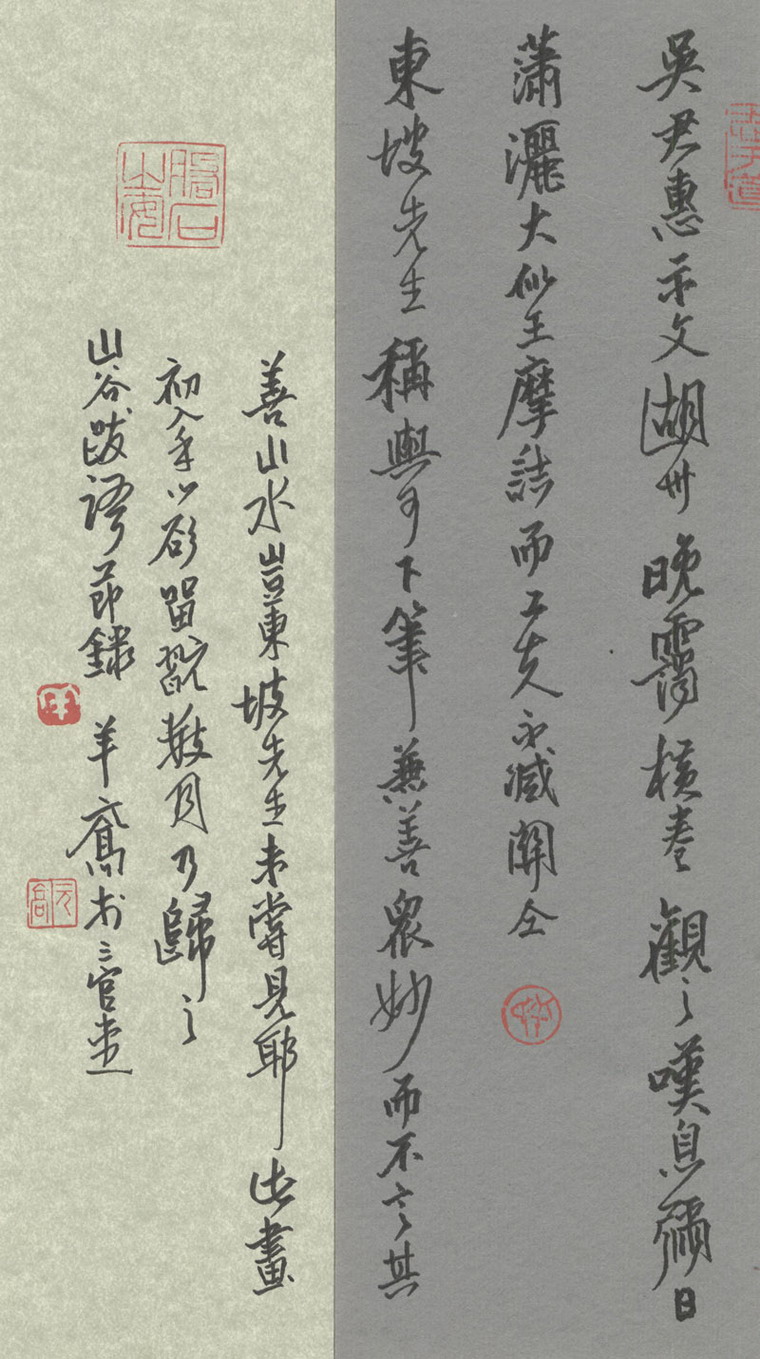 吳君惠示文湖州晚靄橫卷觀之嘆息彌日
瀟灑大似王摩詰而工夫不減關仝
東坡先生稱與可下筆兼善眾妙而不言其
善山水豈東坡先生未嘗見耶此畫
初入手心欲留翫數月乃歸之
山谷跋語節錄 羊